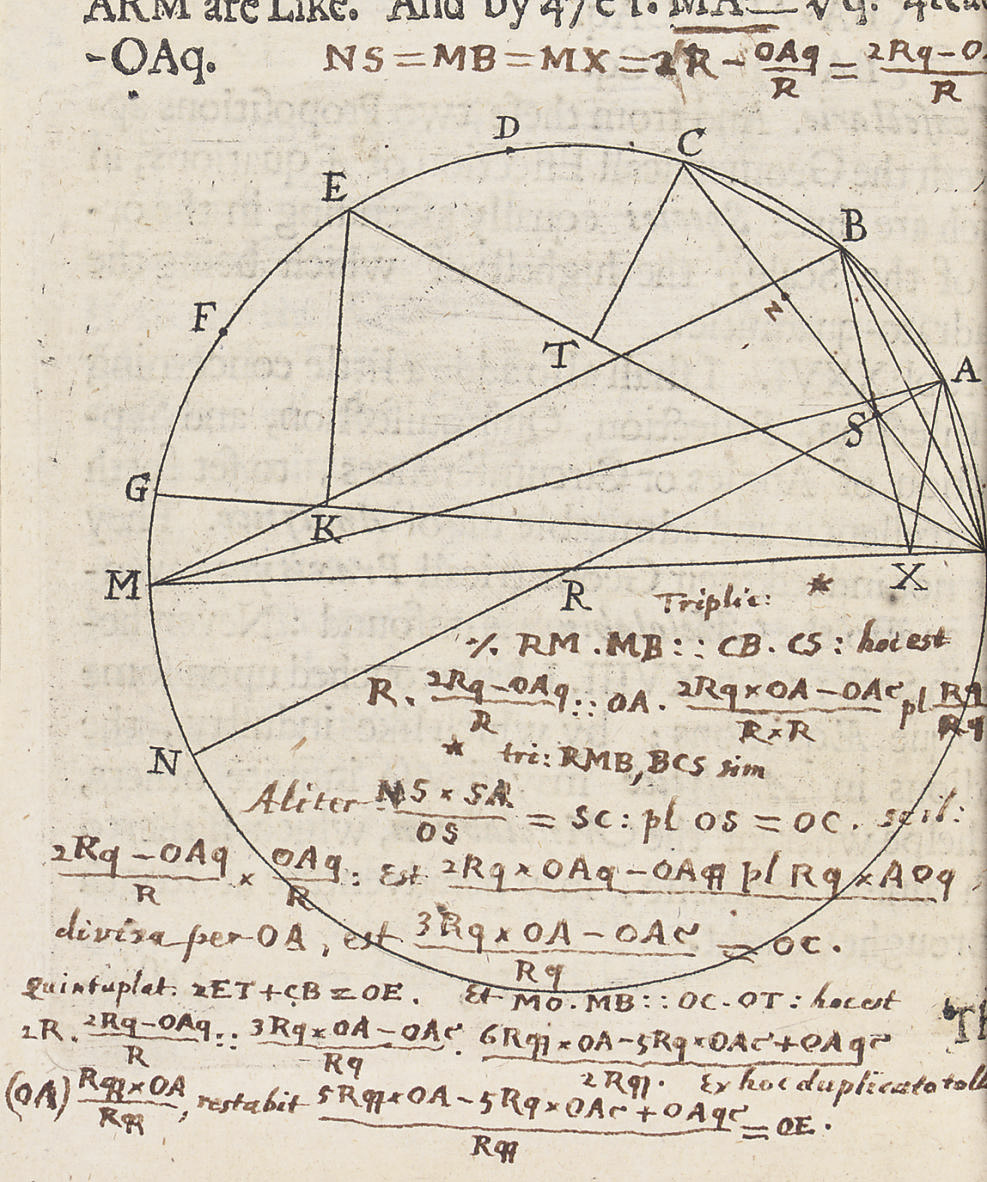 ARM are Like. And by 47 e 1. MA = √ q. 4
-OAq.
NS = MB = MX = 2R - OAq/R = 2Rq - O
R
D
C
E
B
F
Z
T
A
S
G
K
M
R
X
Triplic: *
RM . MB :: CB . CS : hoc est
R . 2Rq-OAq/R :: OA . 2Rq×OA-OAc/R×R pl Rq/Rq
N
* tri: RMB, BCS sim
Aliter NS × SA/OS = SC : pl OS = OC . scil:
2Rq-OAq/R × OAq/R : Est 2Rq×OAq-OAqq pl Rq×AOq
divisa per OA, est 3Rq×OA-OAc/Rq = OC.
Quintuplat: 2ET+CB=OE. Et MO.MB :: OC.OT : hoc est
2R . 2Rq-OAq/R :: 3Rq×OA-OAc/Rq . 6Rqq×OA-5Rq×OAc+OAqc/2Rqq. Ex hoc duplicato toll
Th
(OA) Rqq×OA/Rqq, restabit 5Rqq×OA-5Rq×OAc+OAqc/Rqq = OE.